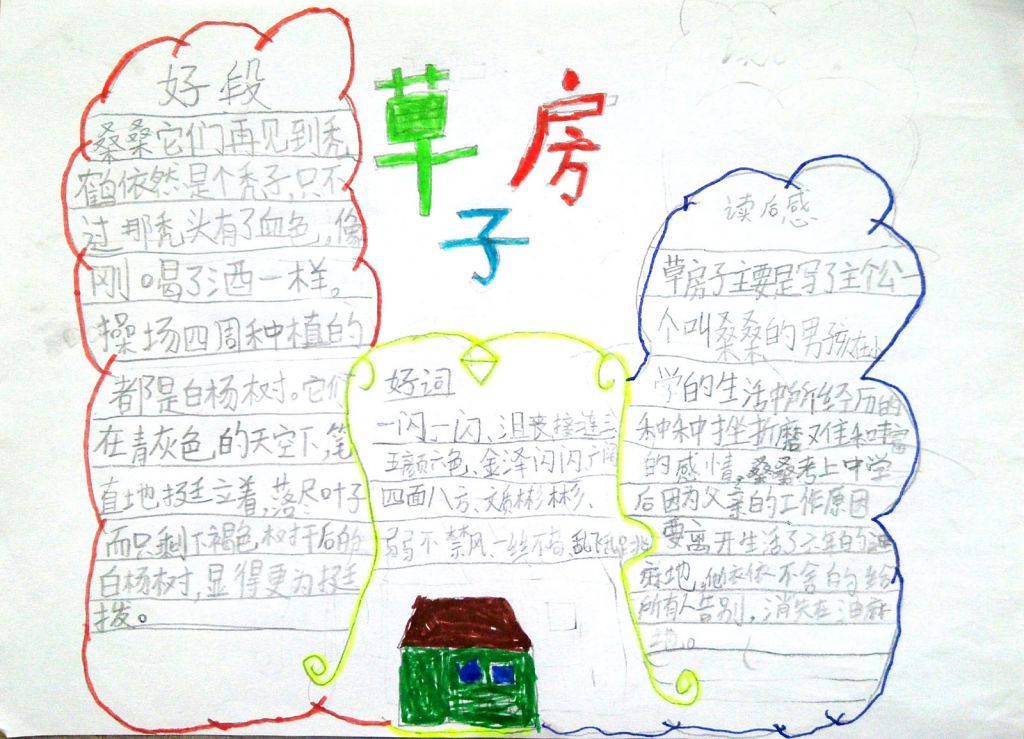 草房
子
好段
桑桑它们再见到秃
鹤依然是个秃子,只不
过那秃头有了血色,像
刚喝了酒一样。
操场四周种植的
都是白杨树。它们
在青灰色的天空下,笔
直地挺立着,落尽叶子
而只剩下褐色树干后的
白杨树,显得更为挺
拨。
好词
一闪一闪、沮丧、接连三
五颜六色、金泽闪闪、广阔
四面八方、文质彬彬、
弱不禁风、一丝不苟、乱飞
读后感
草房子主要是写了主人公一
个叫桑桑的男孩在小
学的生活中所经历的
种种挫折磨难和丰富
的感情,桑桑考上中学
后因为父亲的工作原因
要离开生活了六年的油
麻地,他依依不舍的给
所有人告别,消失在油麻
地。